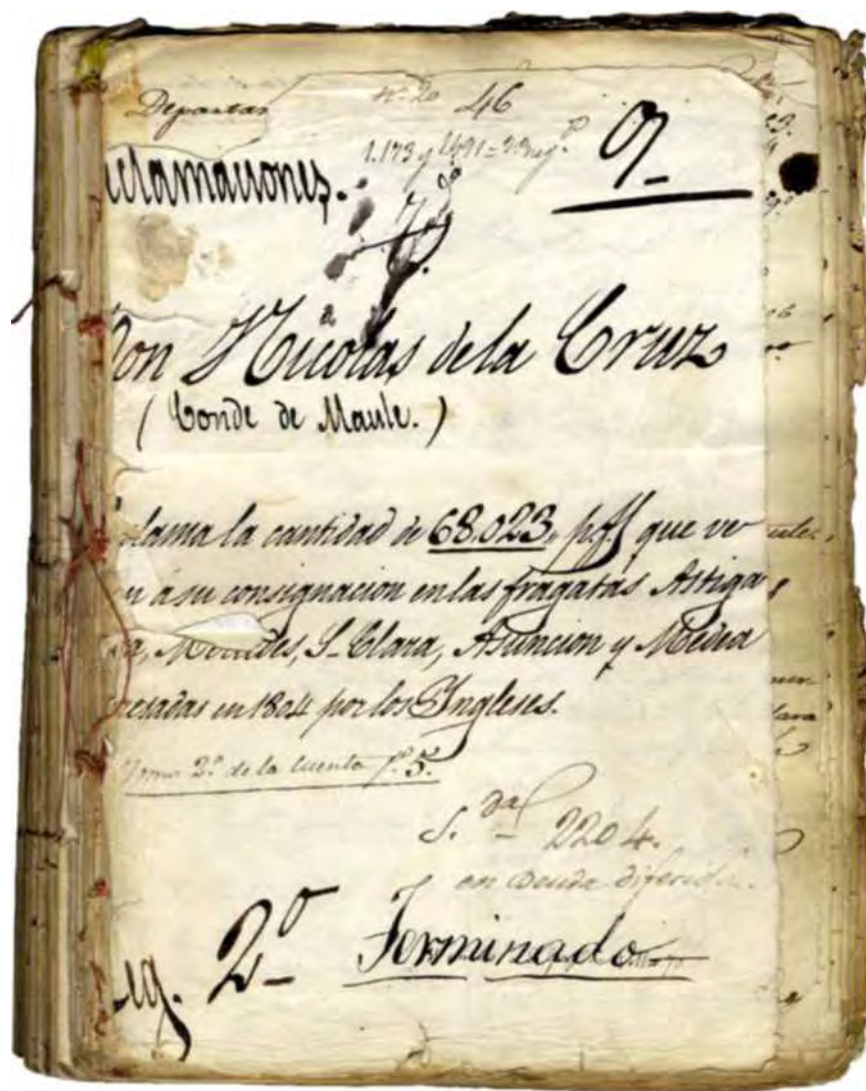 Departam
Nº 20 46
1.173 y 1491 = 23 neg.
9
clamaciones.
7º
Don Nicolas de la Cruz
(Conde de Maule.)
clama la cantidad de 68.023, pff que ve
n a su consignacion en las fragatas Astiga
a, Mercedes, S. Clara, Asuncion y Medea
resadas en 1804 por los Ingleses.
Tomo 2º de la cuenta fº 5.
S. da 2204.
en deuda diferida.
eg. 2º Terminado